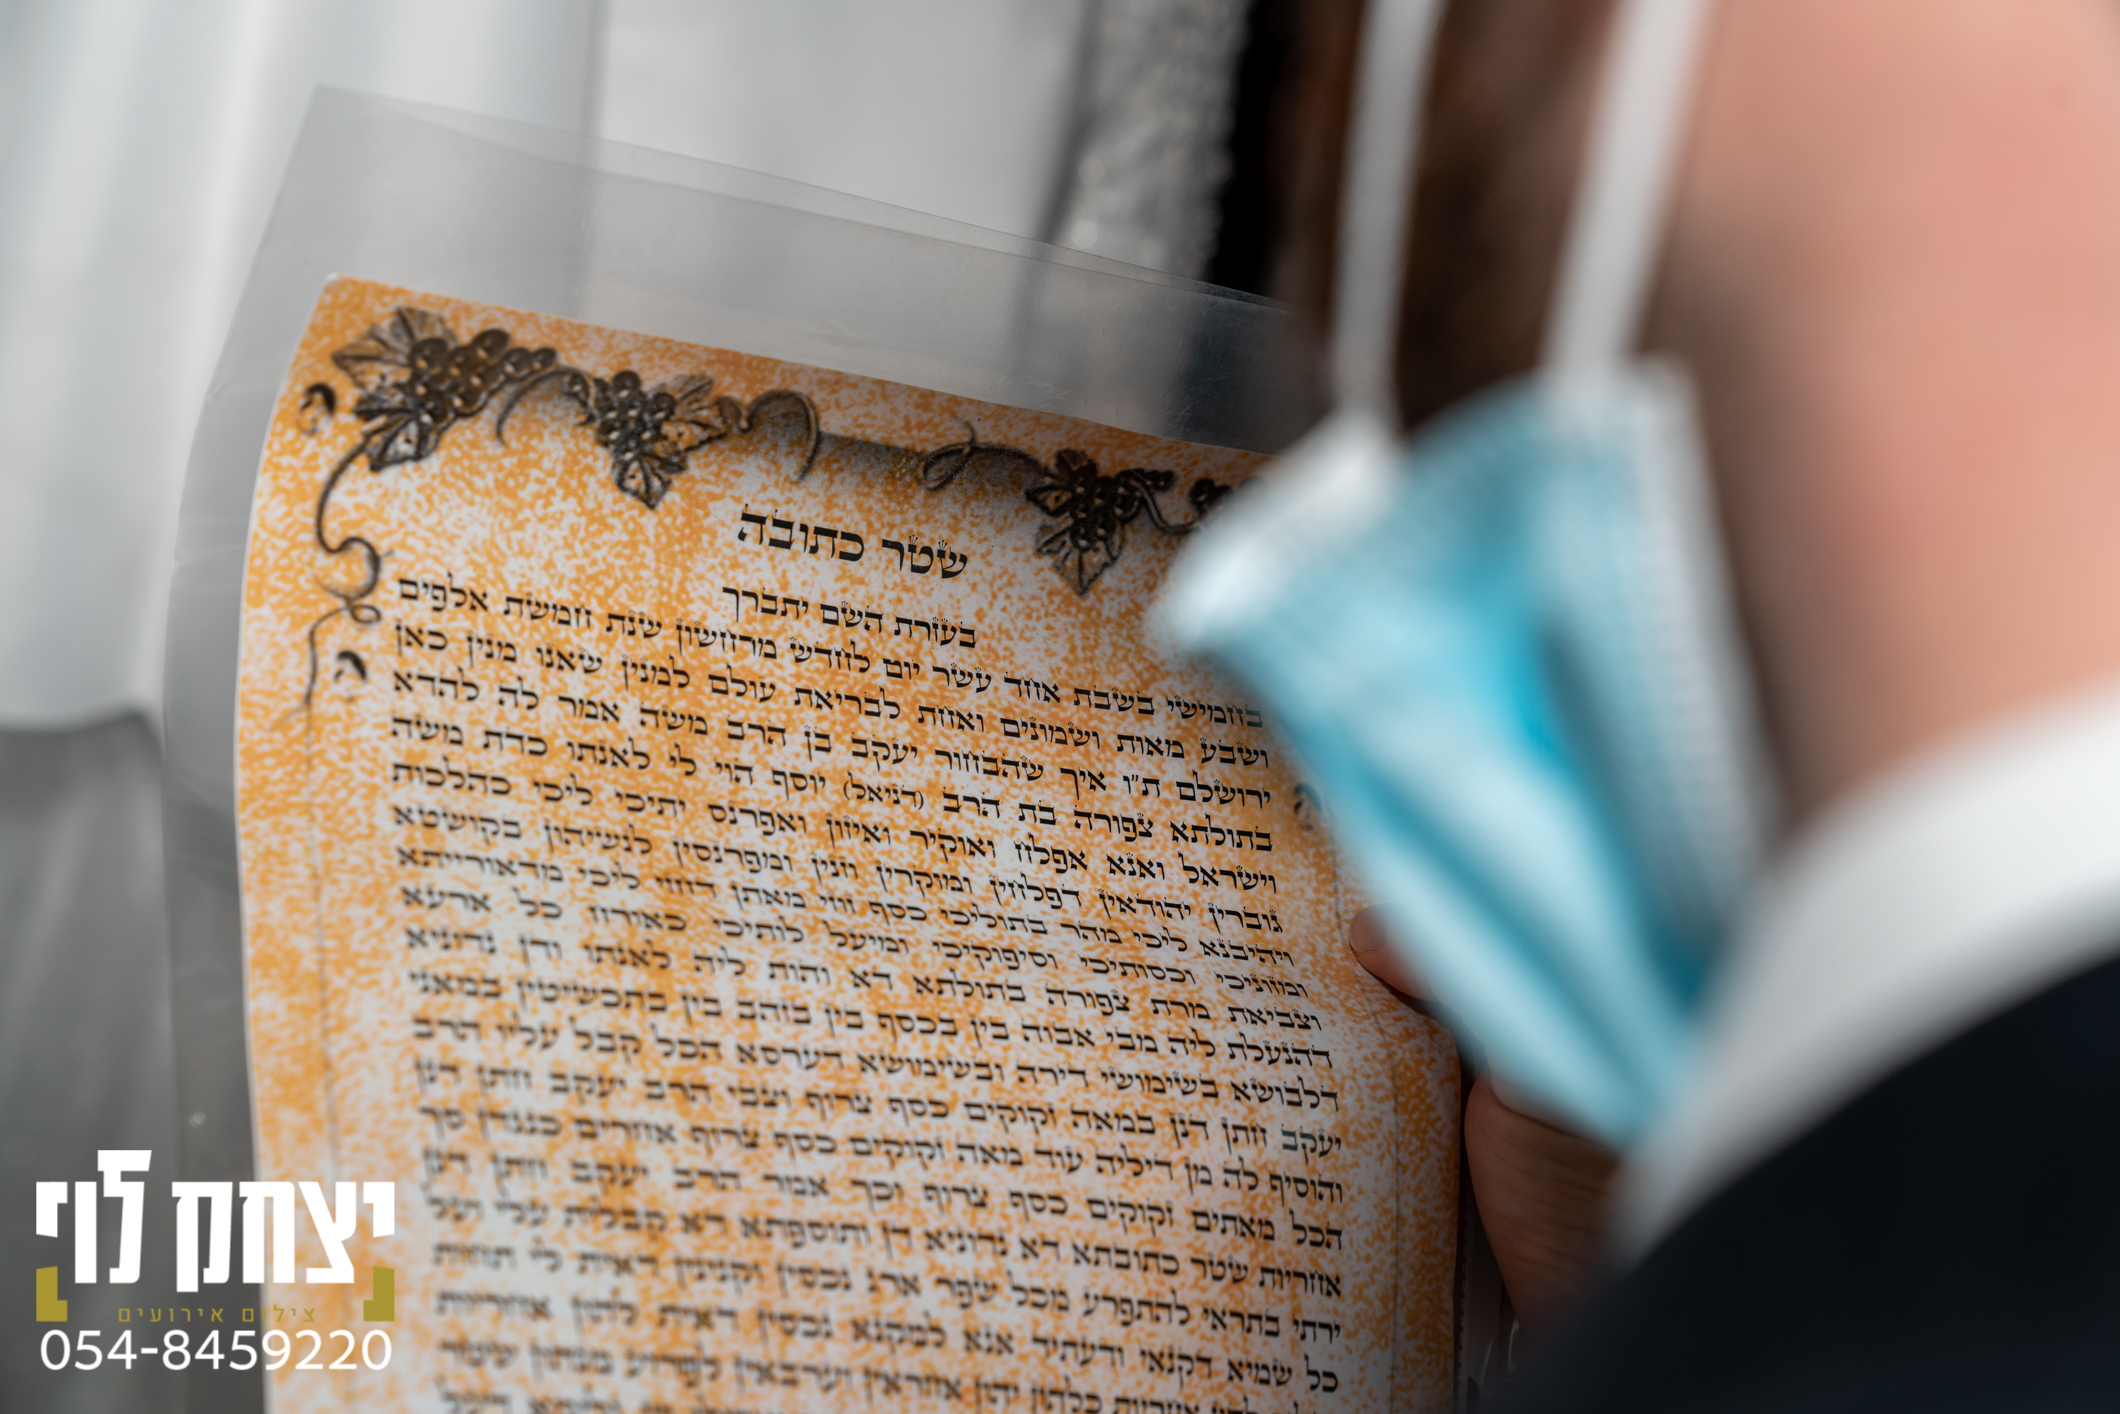 שטר כתובה
בעזרת השם יתברך
בחמישי בשבת אחד עשר יום לחדש מרחשון שנת חמשת אלפים
ושבע מאות ושמונים ואחת לבריאת עולם למנין שאנו מנין כאן
ירושלם ת"ו איך שהבחור יעקב בן הרב משה אמר לה להדא
בתולתא צפורה בת הרב (דניאל) יוסף הוי לי לאנתו כדת משה
וישראל ואנא אפלח ואוקיר ואיזון ואפרנס יתיכי ליכי כהלכות
גוברין יהודאין דפלחין ומוקרין וזנין ומפרנסין לנשיהון בקושטא
ויהיבנא ליכי מהר בתוליכי כסף זוזי מאתן דחזי ליכי מדאורייתא
ומזוניכי וכסותיכי וסיפוקיכי ומיעל לותיכי כאורח כל ארעא
וצביאת מרת צפורה בתולתא דא והות ליה לאנתו ודן נדוניא
דהנעלת ליה מבי אבוה בין בכסף בין בזהב בין בתכשיטין במאני
דלבושא בשימושי דירה ובשימושא דערסא הכל קבל עליו הרב
יעקב חתן דנן במאה זקוקים כסף צרוף וצבי הרב יעקב חתן דנן
והוסיף לה מן דיליה עוד מאה זקוקים כסף צרוף אחרים כנגדן סך
הכל מאתים זקוקים כסף צרוף וכך אמר הרב יעקב חתן דנן
אחריות שטר כתובתא דא נדוניא דן ותוספתא דא קבלית עלי ועל
ירתי בתראי להתפרע מכל שפר ארג נכסין וקנינין דאית לי תחות
כל שמיא דקנאי ודעתיד אנא למקנא נכסין דאית להון אחריות
יצחק לוי
צילום אירועים
054-8459220